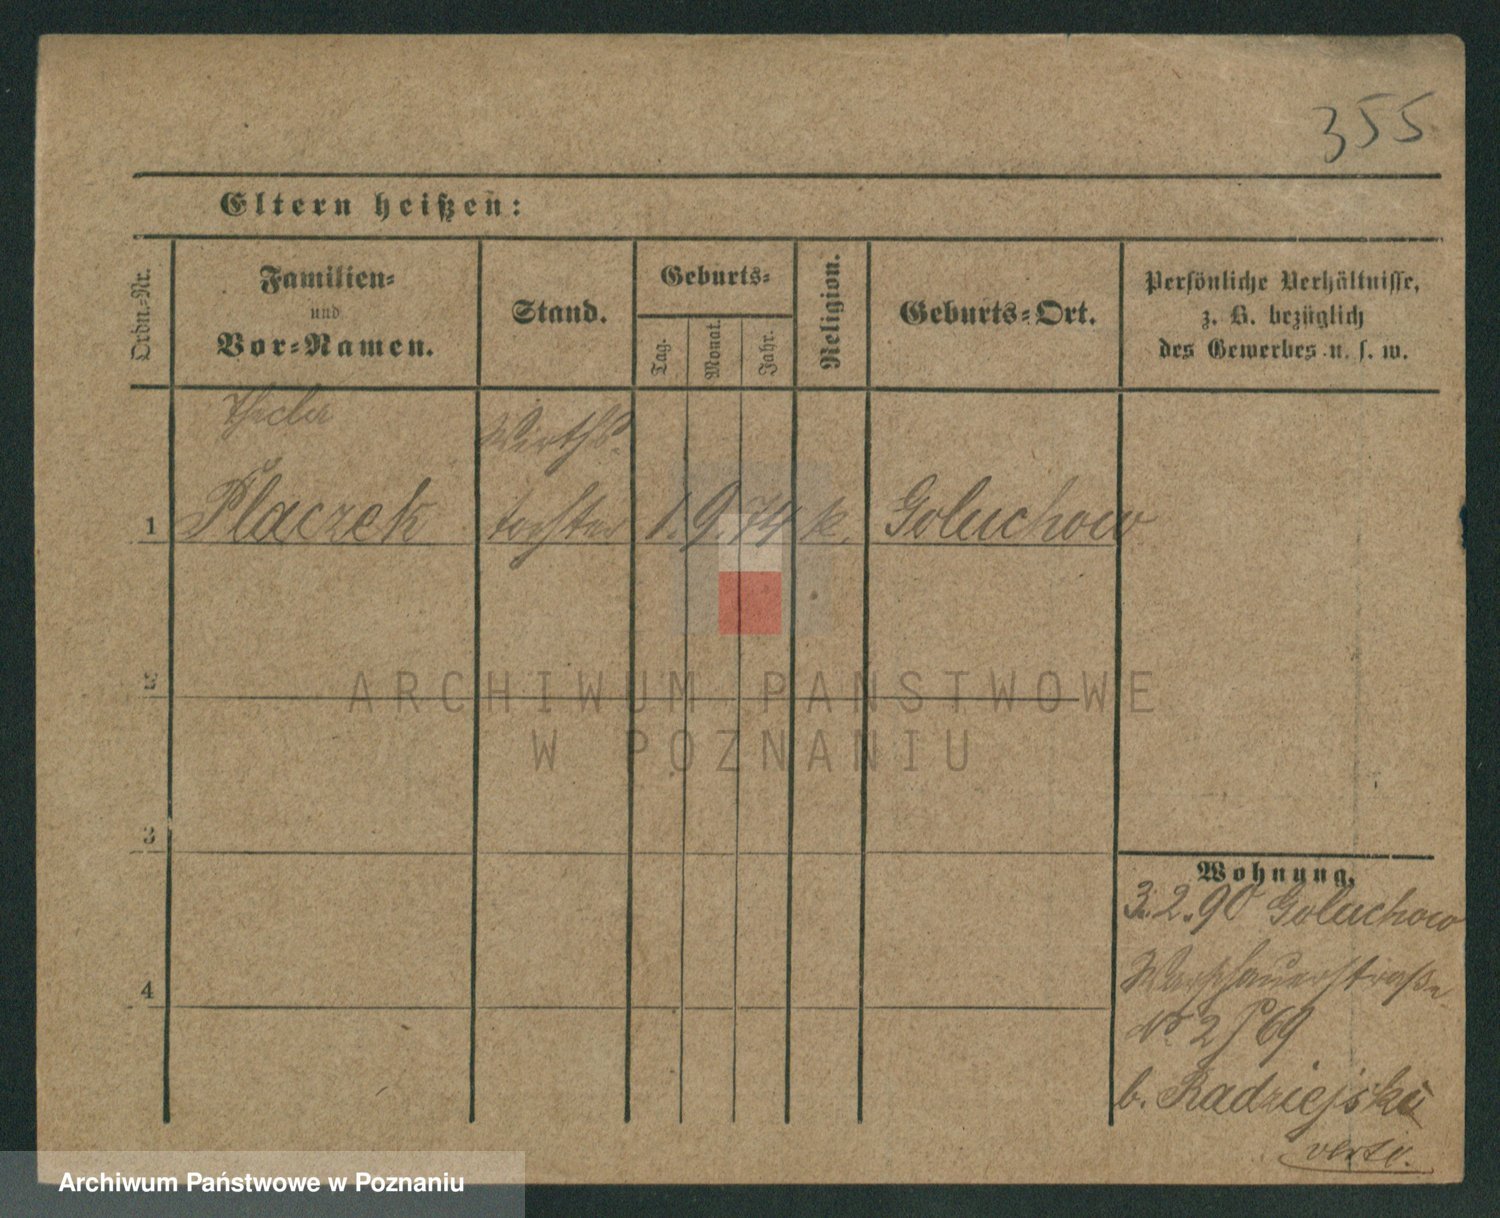 355
Eltern heißen:
Ordn.-Nr.
Familien-
und
Vor-Namen.
Stand.
Geburts-
Tag.
Monat.
Jahr.
Religion.
Geburts-Ort.
Persönliche Verhältnisse,
z. B. bezüglich
des Gewerbes u. s. w.
Thecla
Wirths-
1 Placzek tochter 1. 9. 74 k. Goluchow
2
ARCHIWUM PAŃSTWOWE
W POZNANIU
3
Wohnung.
3.2.90 Goluchow
Warschauerstraße
4
No 2/69
b. Radziejski
verte.
Archiwum Państwowe w Poznaniu